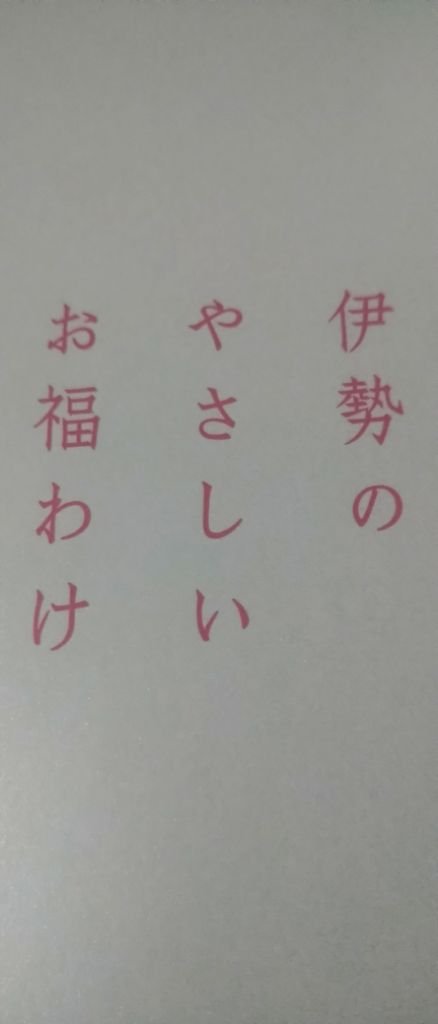 伊勢の
やさしい
お福わけ